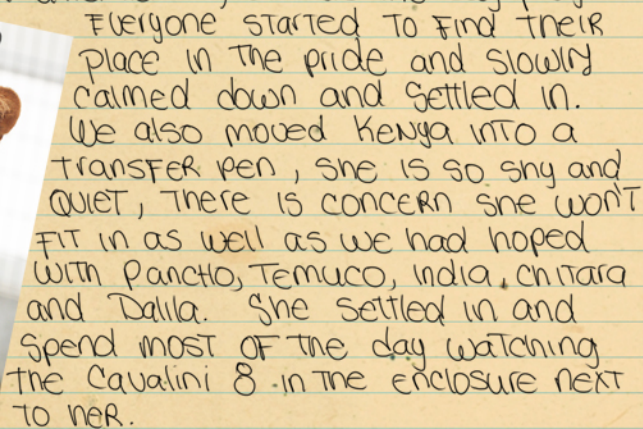 Everyone started to find their
place in the pride and slowly
calmed down and settled in.
We also moved Kenya into a
transfer pen, she is so shy and
quiet, there is concern she won't
fit in as well as we had hoped
with Pancho, Temuco, India, Chitara
and Dalila. She settled in and
spend most of the day watching
the Cavalini 8 in the enclosure next
to her.